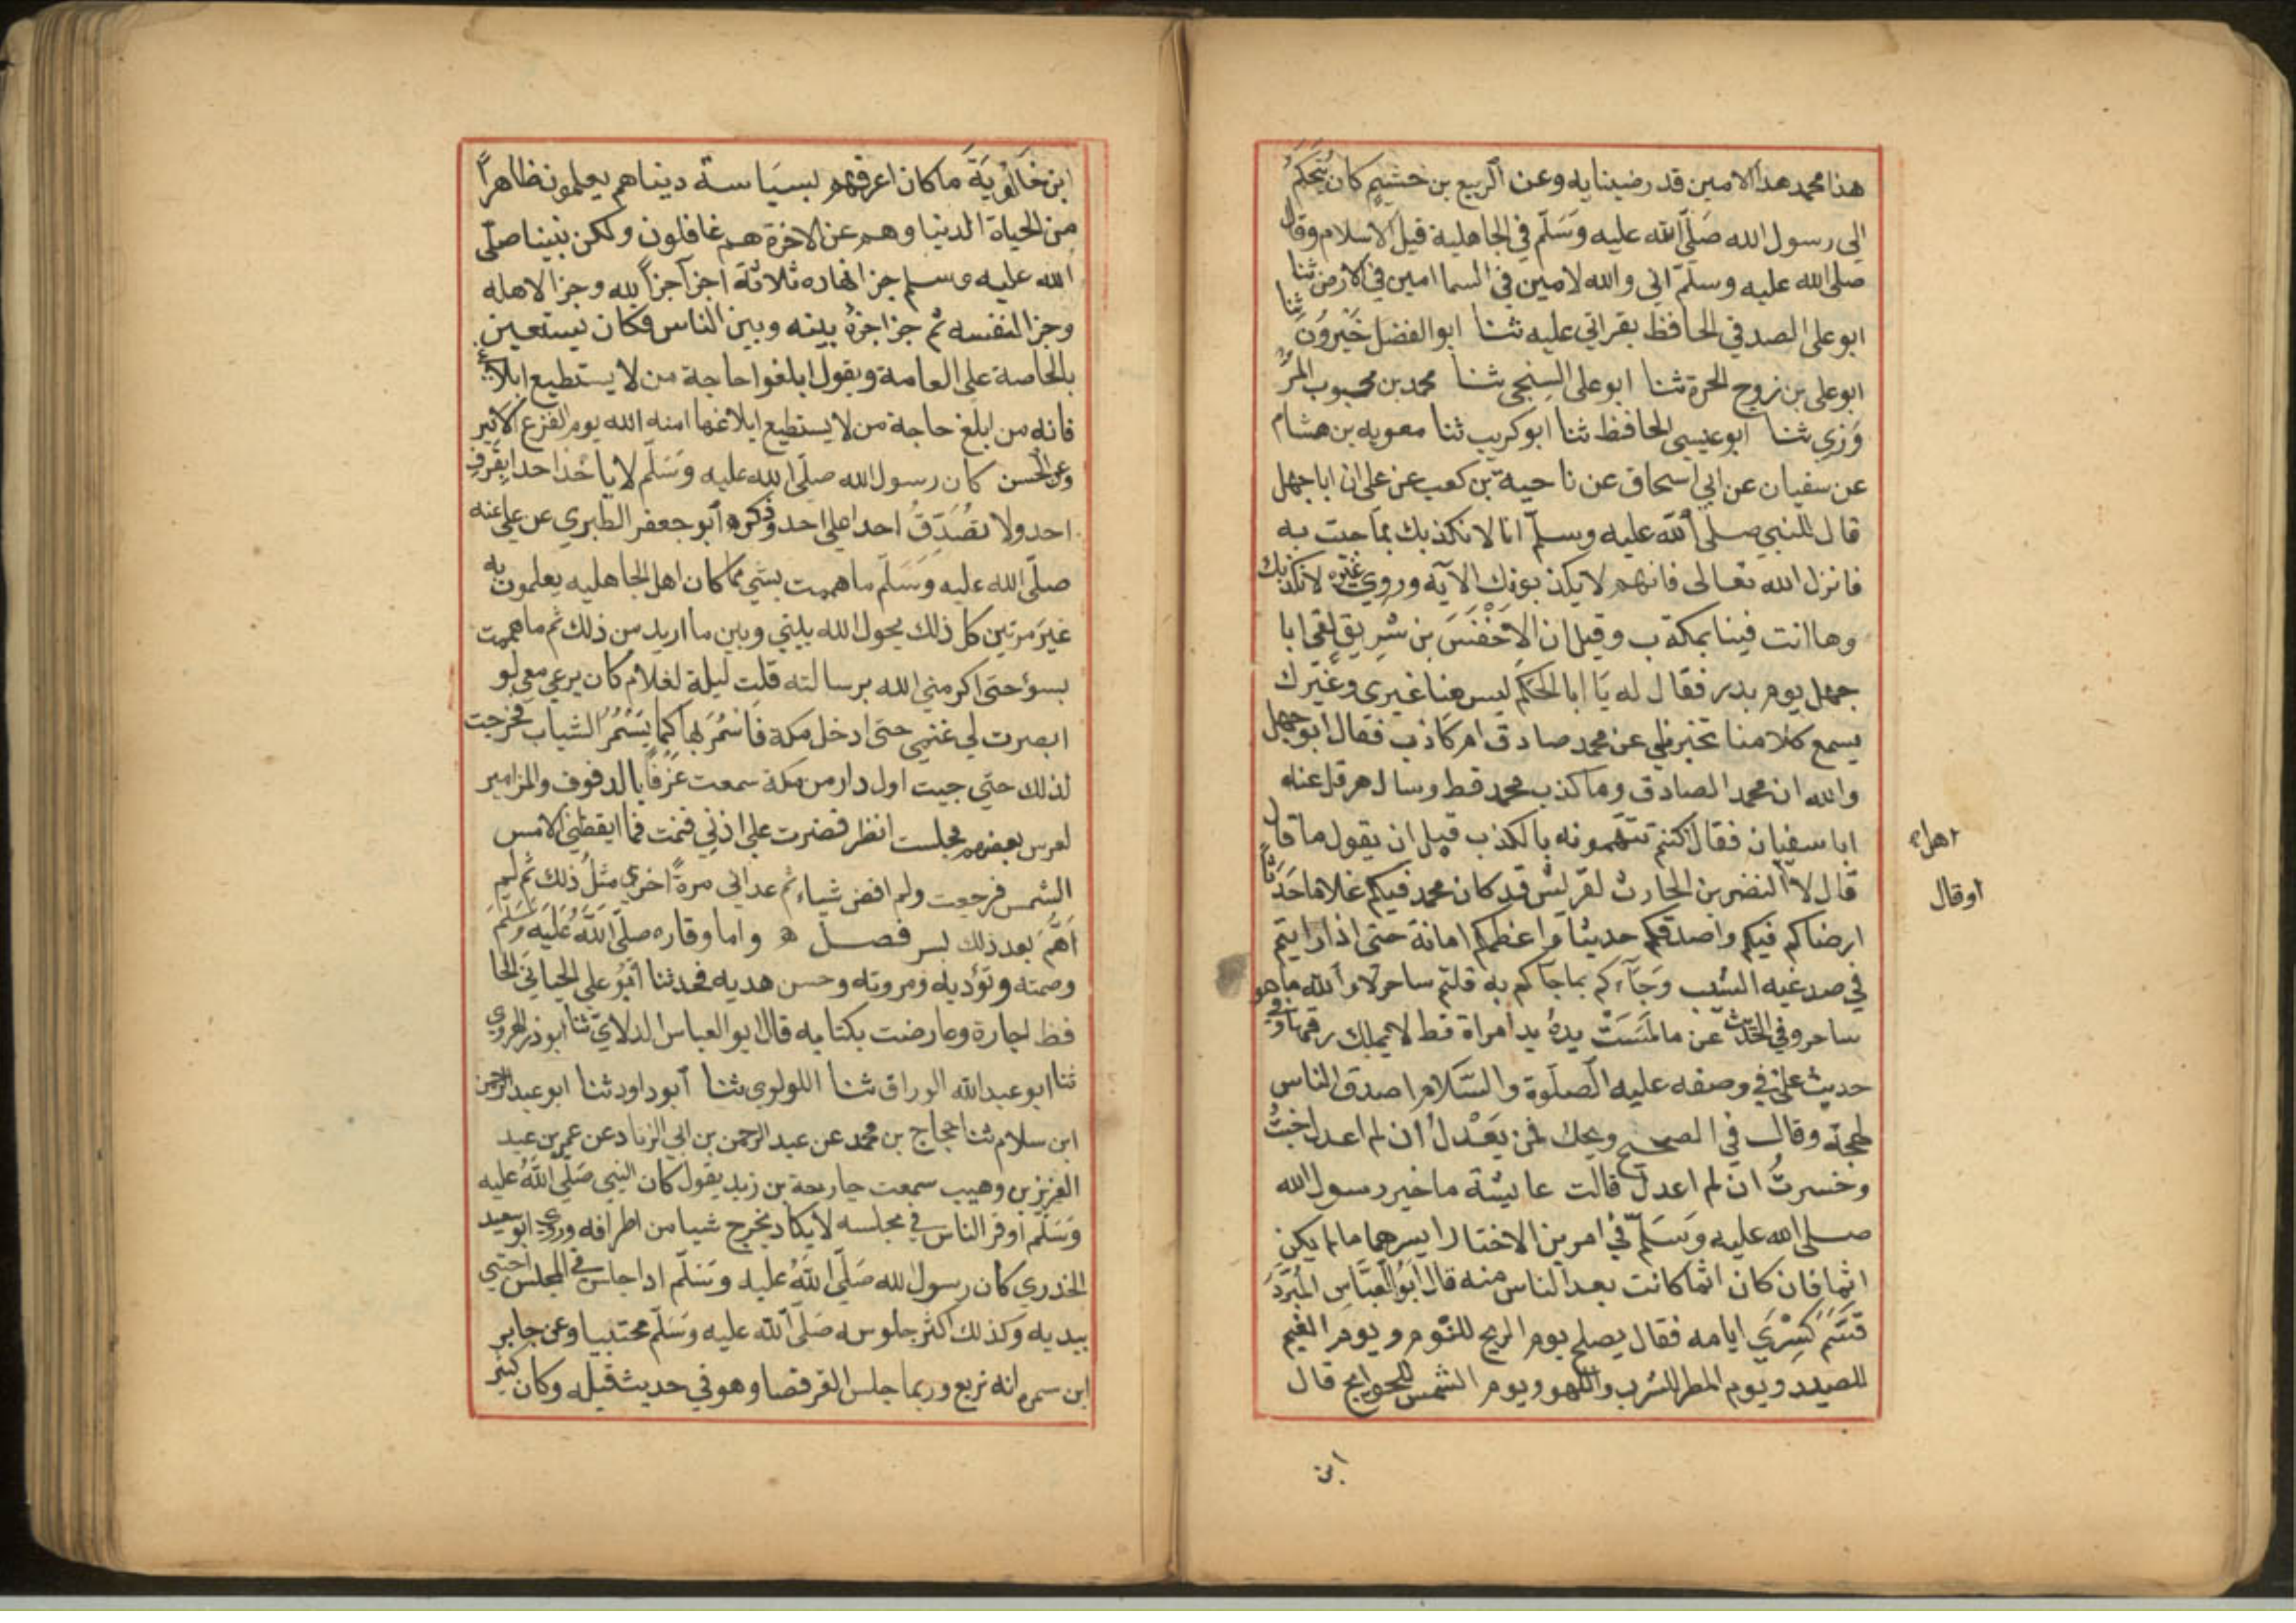 هذا محمد هذا الامين قد رضينا به وعن الربيع بن خشيم كان يتحكم
الى رسول الله صلى الله عليه وسلم في الجاهلية قبل الاسلام وقال
صلى الله عليه وسلم اني والله لامين في السما امين في الارض ثنا
ابو على الصدفي الحافظ بقراتي عليه ثنا ابو الفضل خيرون ثنا
ابو على بن زوج الحرة ثنا ابو على السنجي ثنا محمد بن محبوب المر
وزي ثنا ابو عيسى الحافظ ثنا ابو كريب ثنا معويه بن هشام
عن سفيان عن ابي اسحاق عن ناحية بن كعب عن على ان ابا جهل
قال للنبي صلى الله عليه وسلم انا لا نكذبك بما جيت به
فانزل الله تعالى فانهم لا يكذبونك الآيه وروي غيره لا نكذبك
وما انت فينا بمكذب وقيل ان الاخفنس بن شريق لقى ابا
جهل يوم بدر فقال له يا ابا الحكم ليس هنا غيرى وغيرك
يسمع كلامنا تخبرني عن محمد صادق ام كاذب فقال ابو جهل
والله ان محمد الصادق وما كذب محمد قط وسال هرقل عنه
ابا سفيان فقال كنتم تتهمونه بالكذب قبل ان يقول ما قال
قال لا النضر بن الحارث لقريش قد كان محمد فيكم غلاما حدثا
ارضاكم فيكم واصدقكم حديثا واعظمكم امانة حتى اذا رايتم
في صدغيه الشيب وجآءكم بما جاكم به قلتم ساحر لا والله ما هو
ساحر وفي الحديث عن ما لمست يده يد امراة قط لا يملك رقها وفي
حديث على في وصفه عليه الصلوة والسلام اصدق الناس
لهجة وقال في الصحيح ويحك فمن يعدل ان لم اعدل خبت
وخسرت ان لم اعدل قالت عايشة ما خير رسول الله
صلى الله عليه وسلم في امرين الا اختار ايسرهما ما لم يكن
اثما فان كان اثما كانت بعد الناس منه قال ابو العباس المبرد
قسم كسرى ايامه فقال يصلح يوم الريح للنوم ويوم الغيم
للصيد ويوم المطر للشرب واللهو ويوم الشمس للحوايج قال
اهل
او قال
ابن
ابن خالويه ما كان اعرفهم بسياسة ديناهم يعلمون ظاهرا
من الحياة الدنيا وهم عن الاخرة هم غافلون ولكن نبينا صلى
الله عليه وسلم جزا نهاره ثلاثة اجزآ جزأ لله وجزا لاهله
وجزا لنفسه ثم جزا جزؤ بينه وبين الناس فكان يستعين
بالخاصة على العامة ويقول ابلغوا حاجة من لا يستطيع ابلاغي
فانه من ابلغ حاجة من لا يستطيع ابلاغها امنه الله يوم الفزع الاكبر
وعن الحسن كان رسول الله صلى الله عليه وسلم لا ياخذ احدا بقرف
احد ولا تصدق احدا على احد وذكره ابو جعفر الطبري عن على عنه
صلى الله عليه وسلم ما هممت بشي مما كان اهل الجاهليه يعلمون به
غير مرتين كل ذلك يحول الله بيني وبين ما اريد من ذلك ثم ما هممت
بسوء حتى اكرمني الله برسالته قلت ليلة لغلام كان يرعي معي لو
ابصرت لي غنمي حتى ادخل مكة فاسمر بها كما يسمر الشباب فخرجت
لذلك حتى جيت اول دار من مكة سمعت عزفا بالدفوف والمزامير
لعرس بعضهم فجلست انظر فضرت على اذني فنمت فما ايقظني الامس
الشمس فرجعت ولم اقض شياء ثم عداني مرة اخري مثل ذلك ثم لم
اهم بعد ذلك بسر فصل ه واما وقاره صلى الله عليه وسلم
وصمته وتؤديه ومروته وحسن هديه فحدثنا ابو على الجياني الحا
فظ اجارة وعارضت بكتابه قال ابو العباس الدلاي ثنا ابو ذر الهروي
ثنا ابو عبد الله الوراق ثنا اللولوي ثنا ابو داود ثنا ابو عبد الرحمن
ابن سلام ثنا حجاج بن محمد عن عبد الرحمن بن ابي الزناد عن عمر بن عبد
العزيز بن وهيب سمعت خارجة بن زيد يقول كان النبي صلى الله عليه
وسلم اوقر الناس في مجلسه لا يكاد يخرج شيا من اطرافه وروي ابو سعيد
الخدري كان رسول الله صلى الله عليه وسلم اذا جلس في المجلس احتبى
بيديه وكذلك اكثر جلوسه صلى الله عليه وسلم محتبيا وعن جابر
ابن سمره انه تربع وربما جلس القرفصا وهو في حديث قيله وكان كثير